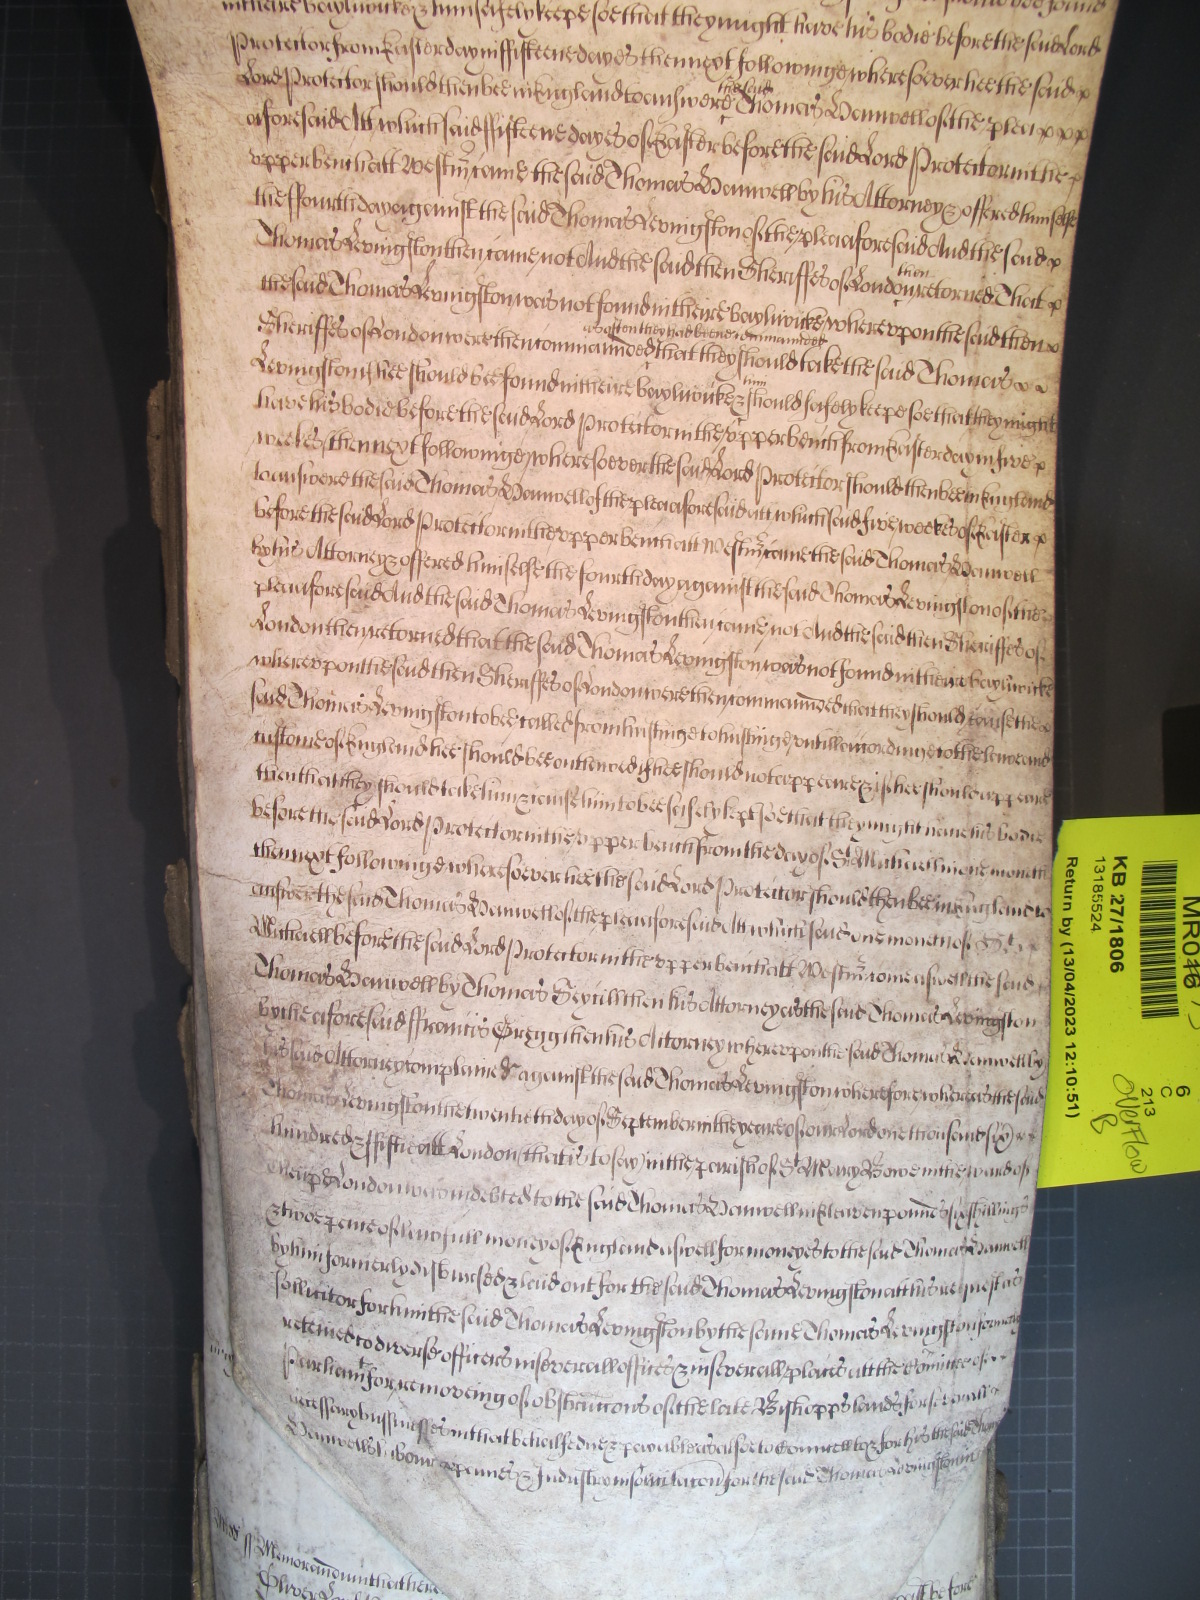 in theire baylywicke & him safely keepe soe that they might have his bodie before the said Lord
Protector from Easter day in fifteene dayes then next followinge wheresoever hee the said
Lord Protector should then bee in England to answere the said Thomas Hanwell of the plea
aforesaid Att which said ffifteene dayes of Easter before the said Lord Protector in the
upper bench att Westmr came the said Thomas Hanwell by his Attorney & offered himselfe
the ffourth day against the said Thomas Levingston of the plea aforesaid And the said
Thomas Levingston then came not And the said then Sheriffes of London then retorned That
the said Thomas Levingston was not found in theire baylywicke whereupon the said then
Sheriffes of London were then commaunded as often they had beene commaunded that they should take the said Thomas
Levingston if hee should bee found in theire baylywicke & him should safely keepe soe that they might
have his bodie before the said Lord Protector in the upper bench from Easter day in five
weekes then next followinge wheresoever the said Lord Protector should then bee in England
to answere the said Thomas Hanwell of the plea aforesaid att which said five weekes of Easter
before the said Lord Protector in the upper bench att Westmr came the said Thomas Hanwell
by his Attorney & offered himselfe the fourth day against the said Thomas Levingston of the
plea aforesaid And the said Thomas Levingston then came not And the said then Sheriffes of
London then retorned that the said Thomas Levingston was not found in theire baylywicke
whereupon the said then Sheriffes of London were then commaunded that they should cause the
said Thomas Levingston to bee called from hustinge to hustinge untill accordinge to the lawe and
custome of England hee should bee outlawed if hee should not appeare & if hee should appeare
then that they should take him & cause him to bee safely kept soe that they might have his bodie
before the said Lord Protector in the upper bench from the day of St Michaell in one moneth
then next followinge wheresoever hee the said Lord Protector should then bee in England to
answere the said Thomas Hanwell of the plea aforesaid Att which said one moneth of St
Michaell before the said Lord Protector in the upper bench att Westmr come aswell the said
Thomas Hanwell by Thomas then his Attorney as the said Thomas Levingston
by the aforesaid ffrancis Gregg then his Attorney whereupon the said Thomas Hanwell by
his said Attorney complained against the said Thomas Levingston wherefore whereas the said
Thomas Levingston the twentieth day of September in the yeare of our Lord one thousand six
hundred & ffiftie att London (that is to say) in the parish of St Mary Bowe in the ward of
Cheape London was indebted to the said Thomas Hanwell in Eleaven pounds six shillings
& twoe pence of lawfull money of England aswell for moneyes to the said Thomas Hanwell
by him formerly disbursed & laid out for the said Thomas Levingston att his request as
sollicitor for him the said Thomas Levingston by the same Thomas Levingston formerly
reteined to diverse officers in severall offices & in severall places att the Comittee of
Parliamt for removeing of obstruccons of the late Bishopps lands for severall
necessary buissinesses in that behalfe due & payable as alsoe to Councell & for his the said Thomas
Hanwells labour paines & Industry in sollicitacon for the said Thomas Levingston in
Memorandum that
before
MR016
KB 27/1806
13185524
Return by (13/04/2023 12:10:51)
6
C
213
Overflow
B